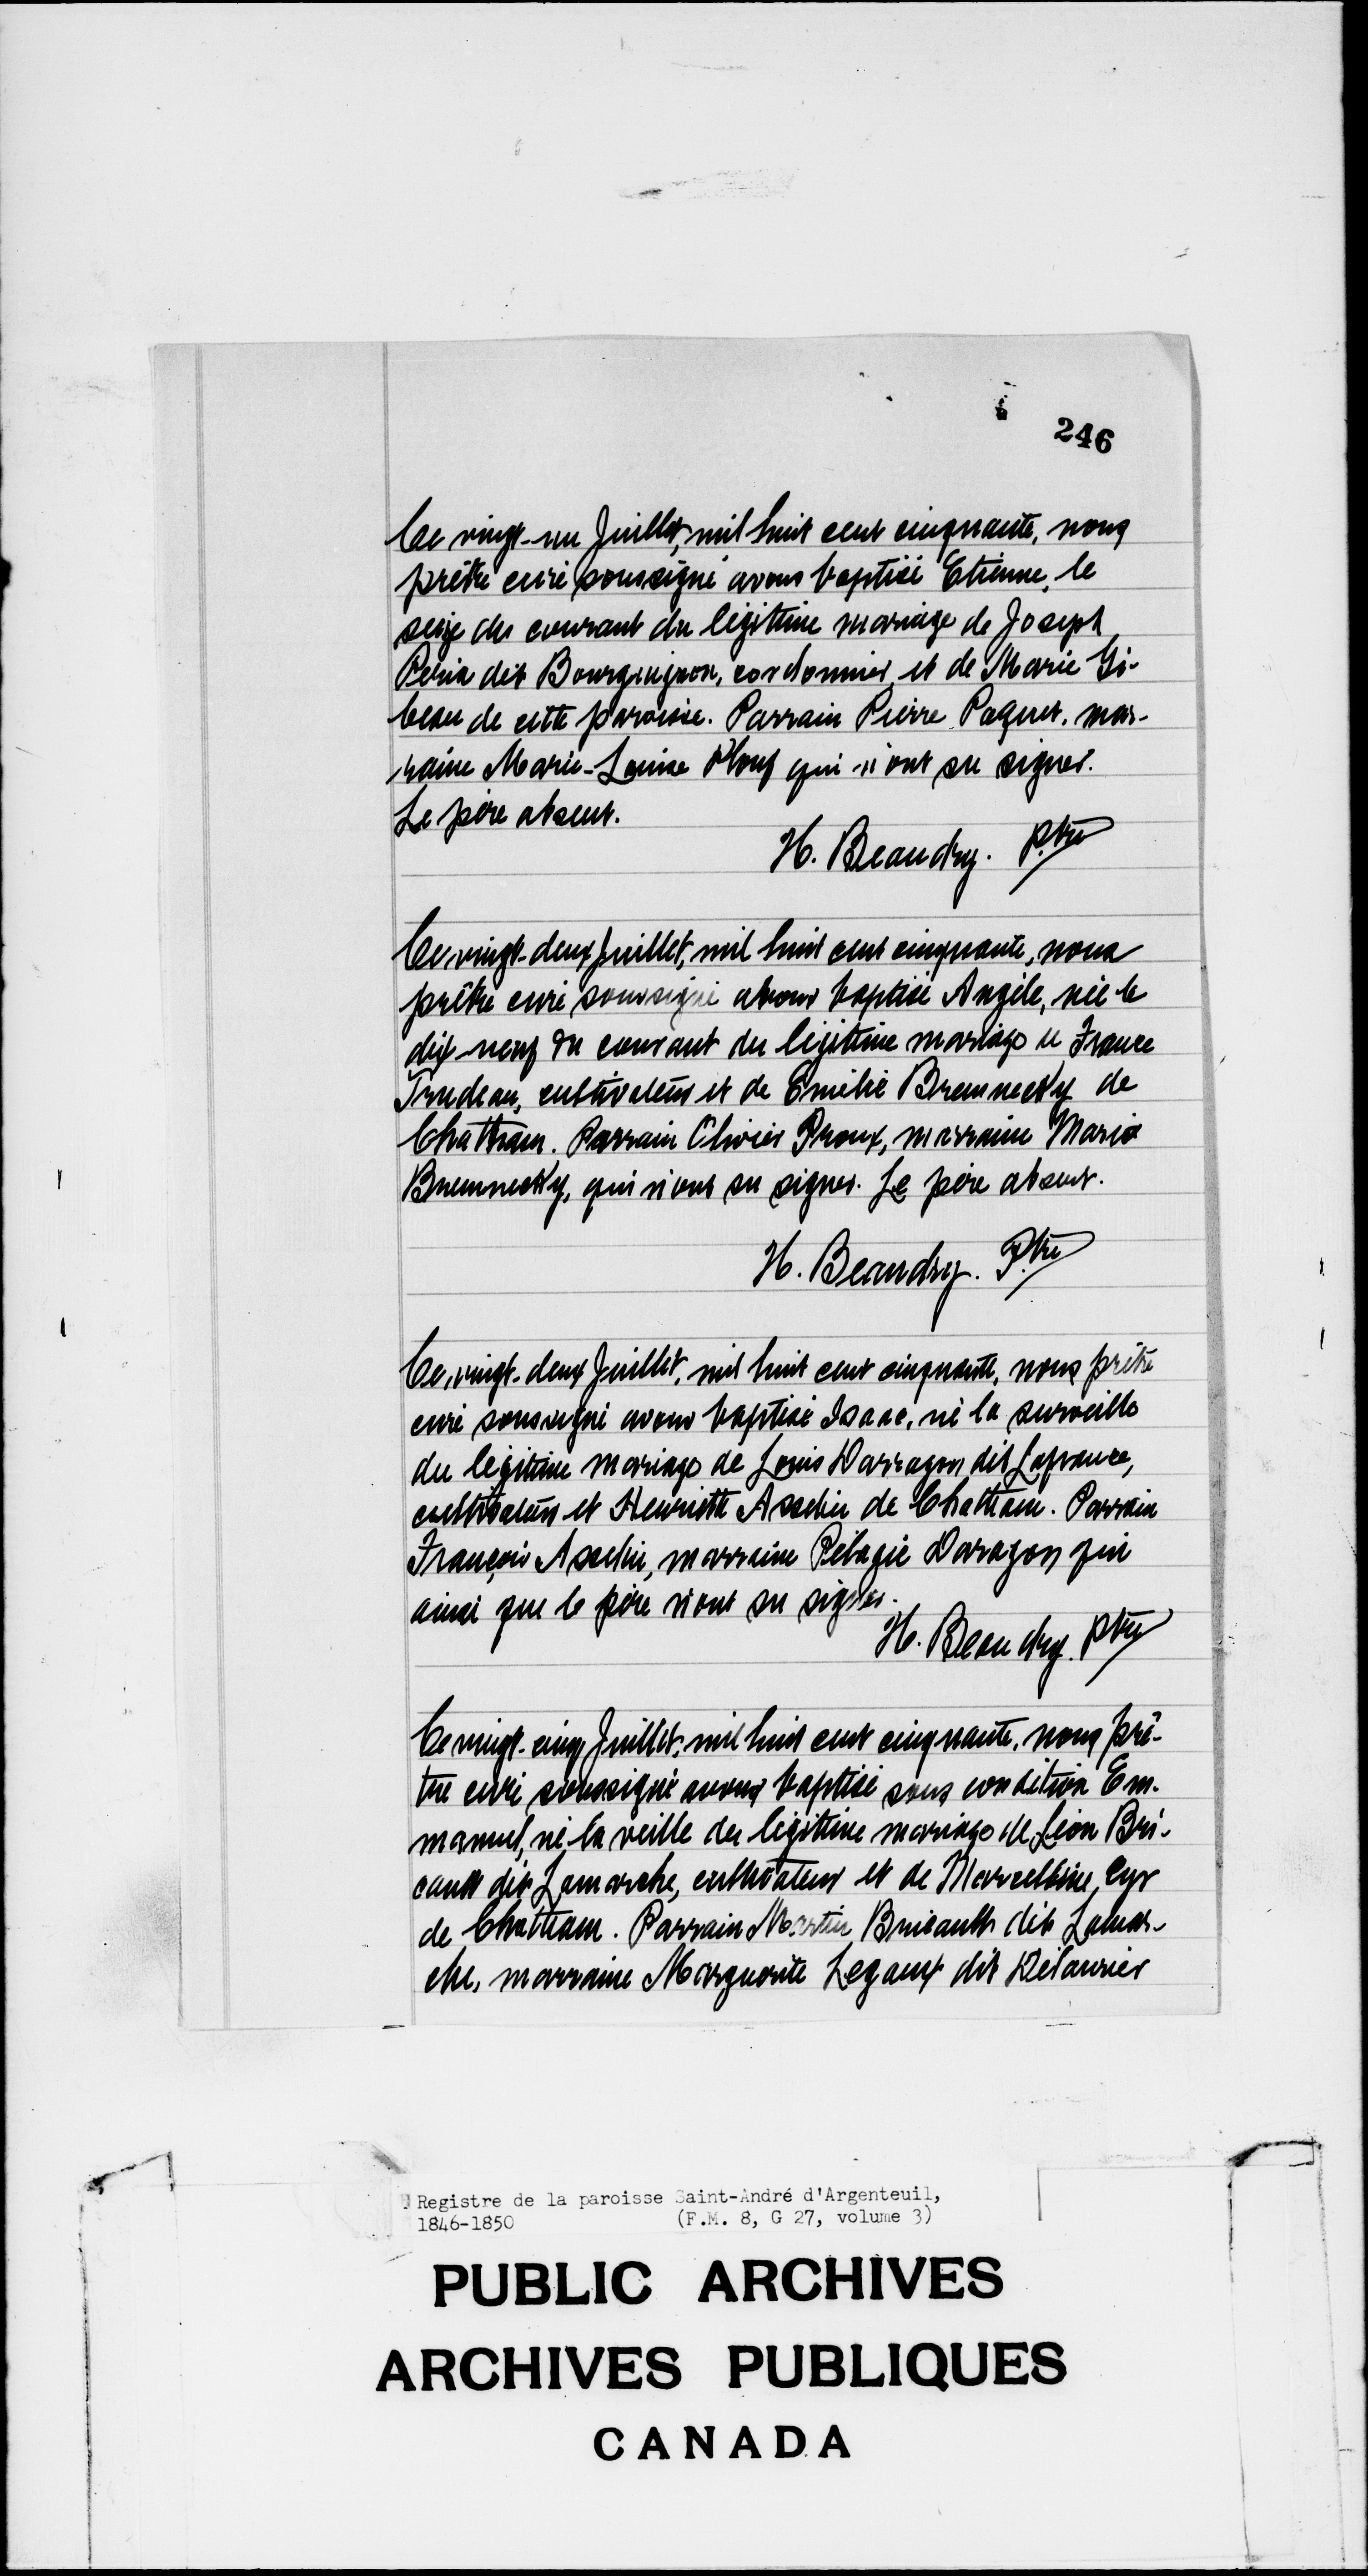 246
Ce vingt-un Juillet, mil huit cent cinquante, nous
prêtre curé soussigné avons baptisé Etienne, le
seize du courant du légitime mariage de Joseph
dit Bourguignon, cordonnier et de Marie Gi-
beau de cette paroisse. Parrain Pierre Paquet. mar-
raine Marie-Louise qui n'ont su signer.
Le père absent.
H. Beaudry. Ptre
Ce vingt-deux Juillet, mil huit cent cinquante, nous
prêtre curé soussigné avons baptisé Angèle, née le
dix-neuf du courant du légitime mariage de France
Trudeau, cultivateur et de Emélie de
Chatham. Parrain Olivier Proux, marraine Marie
qui n'ont su signer. Le père absent.
H. Beaudry. Ptre
Ce vingt-deux Juillet, mil huit cent cinquante, nous prêtre
curé soussigné avons baptisé Isaac, né la surveille
du légitime mariage de Louis Darragon dit Lafrance,
cultivateur et Henriette Asselin de Chatham. Parrain
François Asselin, marraine Pélagie Daragon qui
ainsi que le père n'ont su signer.
H. Beaudry. Ptre
Ce vingt-cinq Juillet, mil huit cent cinquante, nous prê-
tre curé soussigné avons baptisé sous condition Em-
manuel, né la veille du légitime mariage de Léon Bri-
cault dit Lamarche, cultivateur et de Marcelline Cyr
de Chatham. Parrain Martin Bricault dit Lamar-
che, marraine Marguerite Legault dit
Registre de la paroisse Saint-André d'Argenteuil,
1846-1850 (F.M. 8, G 27, volume 3)
PUBLIC ARCHIVES
ARCHIVES PUBLIQUES
CANADA